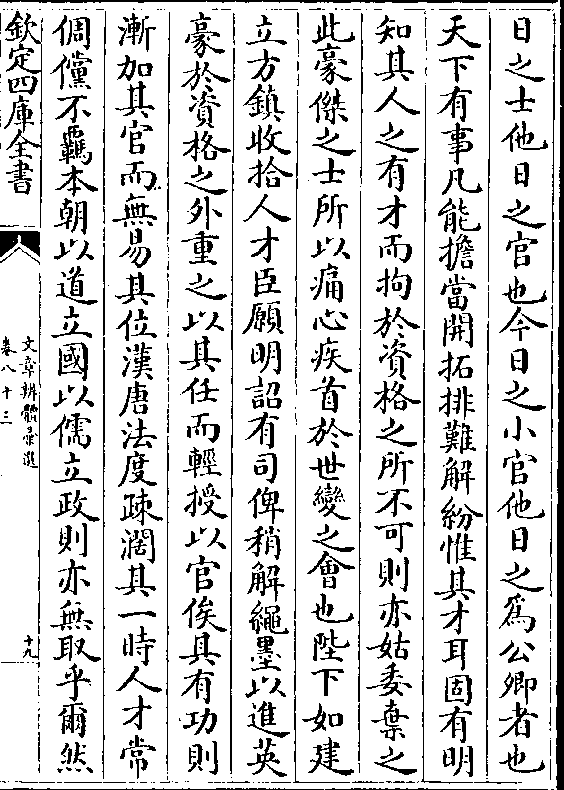 日之士他日之官也今日之小官他日之為公卿者也
天下有事凡能擔當開拓排難解紛惟其才耳固有明
知其人之有才而拘於資格之所不可則亦姑委棄之
此豪傑之士所以痛心疾首於世變之會也陛下如建
立方鎮收拾人才臣願明詔有司俾稍解繩墨以進英
豪於資格之外重之以其任而輕授以官俟其有功則
漸加其官而無易其位漢唐法度疎濶其一時人才常
倜儻不羈本朝以道立國以儒立政則亦無取乎爾然
欽定四庫全書
文章辨體彙選
卷八十三
十九